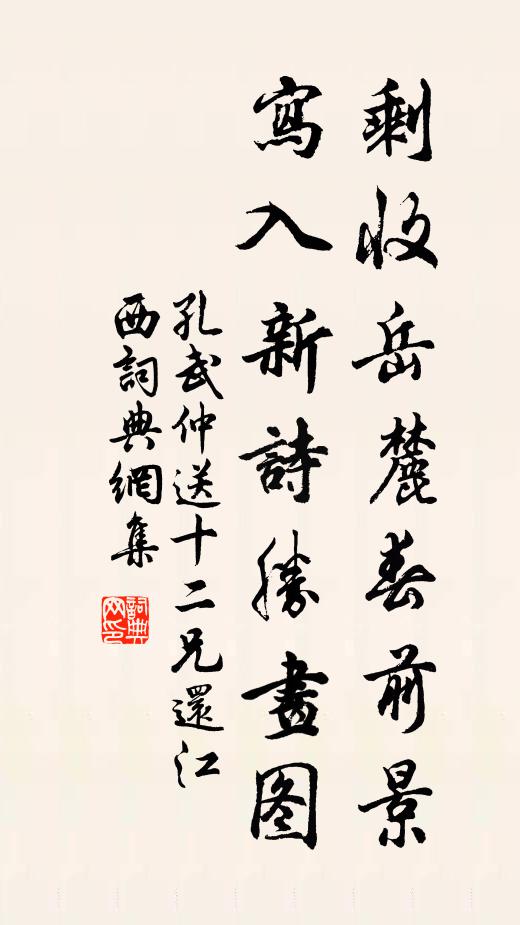 剩收岳麓春前景
寫入新詩勝畫图
孔武仲送十二兄還江
西詞典網集
詞典网印